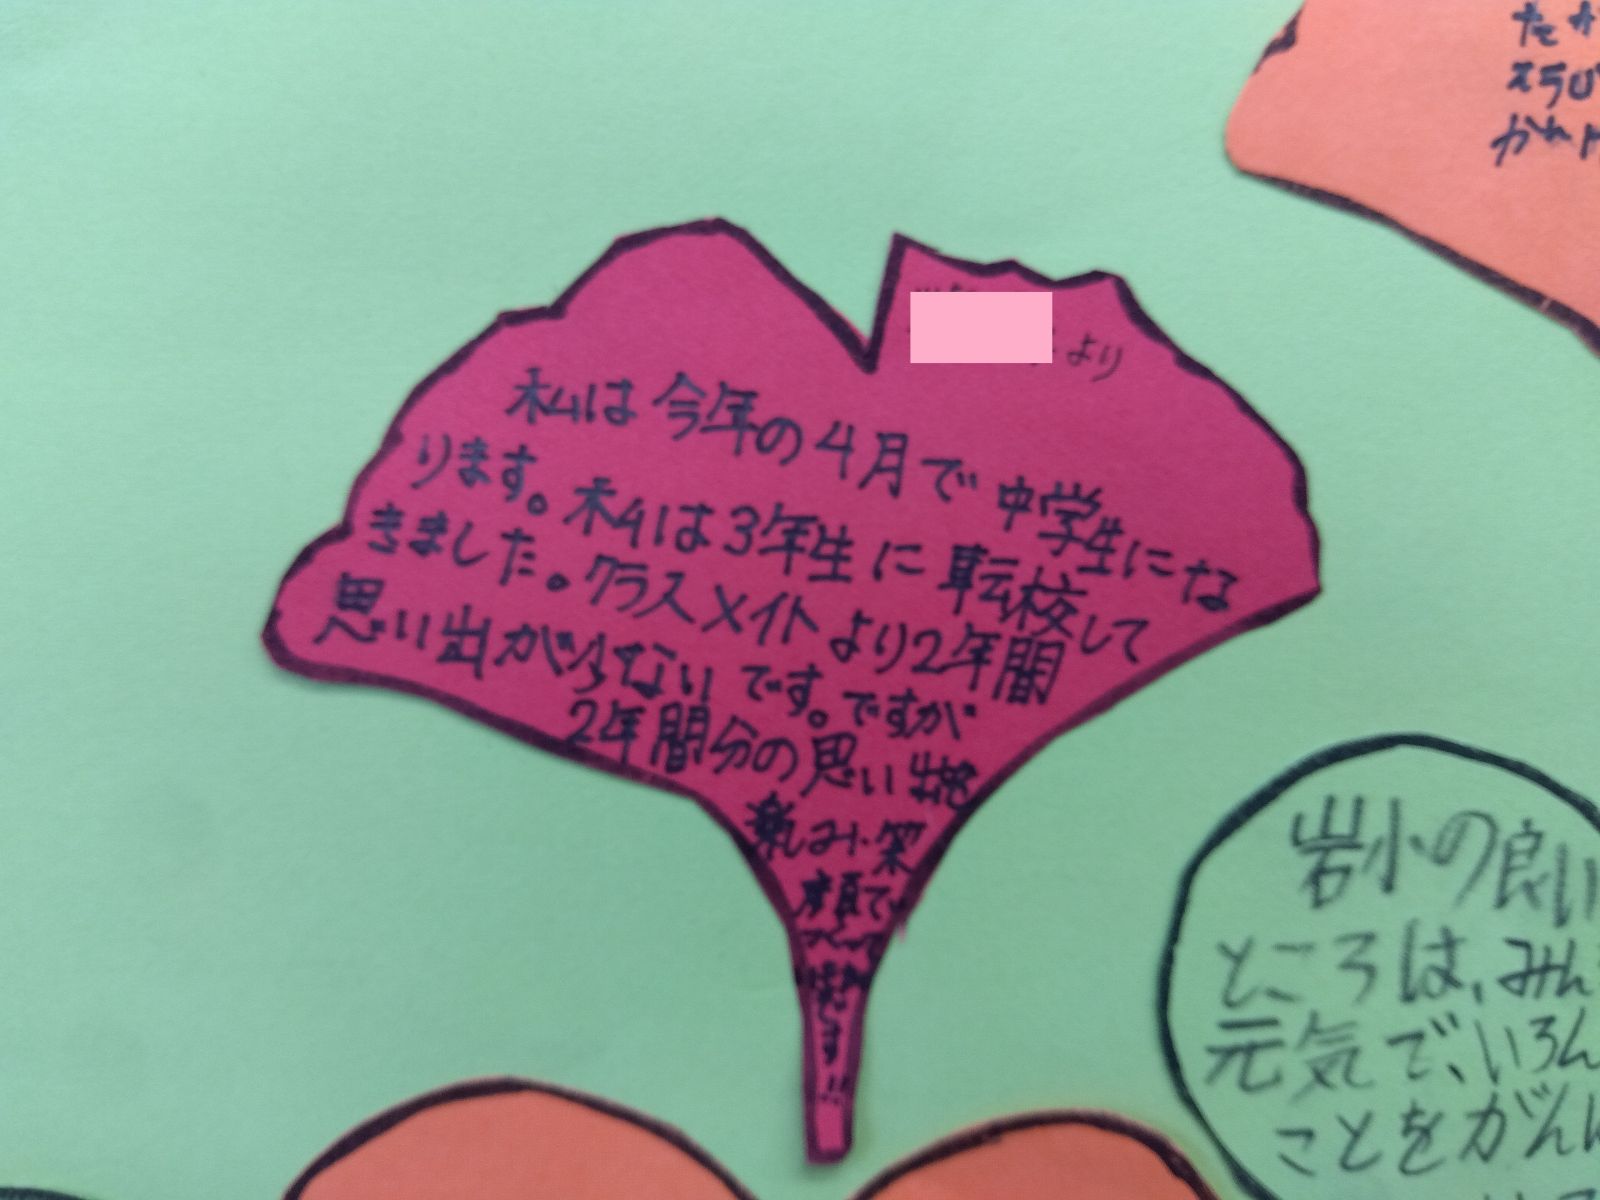 より
私は今年の4月で中学生にな
ります。私は3年生に転校して
きました。クラスメイトより2年間
思い出が少ないです。ですが
2年間分の思い出を
楽しみ、笑
顔で
します!!
たか
えらび
かれ
岩小の良い
ところは、みん
元気で、いろん
ことをがん